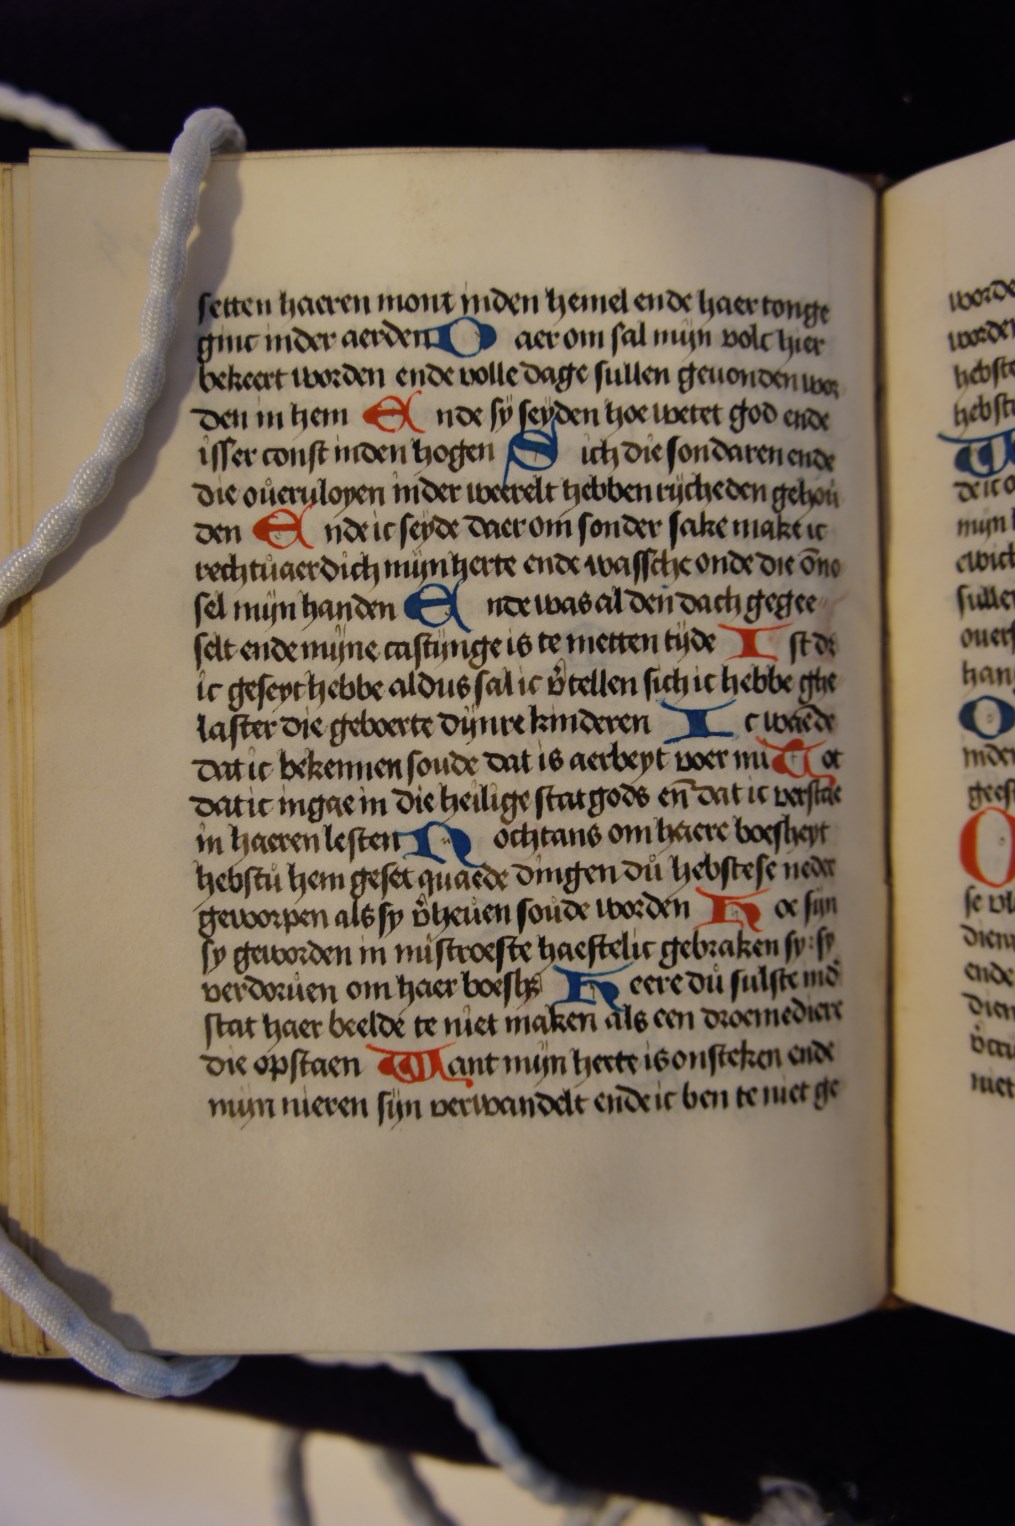 setten haeren mont inden hemel ende haer tonge
ginc inder aerden D aer om sal mijn volc hier
bekeert worden ende volle dage sullen geuonden wor
den in hem E nde sy seyden hoe wetet god ende
isser const inden hogen S ich die sondaren ende
die oueruloyen inder weerelt hebben rijcheden gehou
den E nde ic seyde daer om sonder sake make ic
rechtuaerdich mijn herte ende wassche onde die ōno
sel mijn handen E nde was al den dach gegee
selt ende mijne castijnge is te metten tijde I st dt
ic geseyt hebbe aldus sal ic v̄tellen sich ic hebbe ghe
laster die geboerte dijnre kinderen I c waēde
dat ic bekennen soude dat is aerbeyt voer mi T ot
dat ic ingae in die heilige stat gods en̄ dat ic verstae
in haeren lesten N ochtans om haere boesheyt
hebstu hem geset quaede dingen du hebstese neder
geworpen als sy v̄heuen soude worden H oe sijn
sy geworden in mistroeste haestelic gebraken sy: sy
verdoruen om haer boesh; H eere du sulste ind̄
stat haer beelde te niet maken als een droemediere
die opstaen Want mijn herte is onsteken ende
mijn nieren sijn verwandelt ende ic ben te niet ge